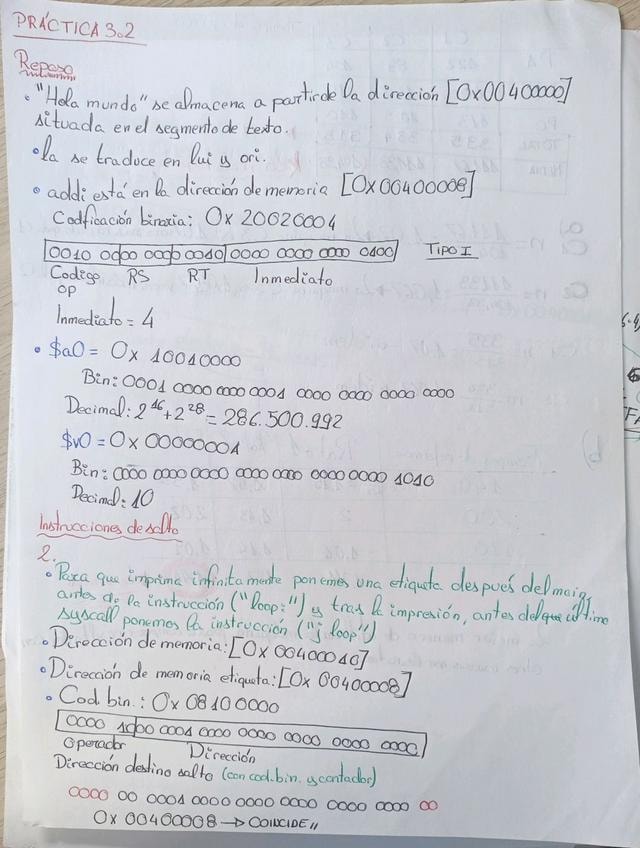 PRÁCTICA 3.2
Repaso
• "Hola mundo" se almacena a partir de la dirección [0x00400000]
situada en el segmento de texto.
• la se traduce en lui y ori.
• addi está en la dirección de memoria [0x00400008]
Codificación binaria: 0x20020004
0010 0000 0000 0010 0000 0000 0000 0100 TIPO I
Codigo RS RT Inmediato
OP
Inmediato = 4
• $a0 = 0x 10010000
Bin: 0001 0000 0000 0001 0000 0000 0000 0000
Decimal: 2^16 + 2^28 = 286.500.992
$v0 = 0x0000000A
Bin: 0000 0000 0000 0000 0000 0000 0000 1010
Decimal: 10
Instrucciones de salto
2.
• Para que imprima infinitamente ponemos una etiqueta después del main,
antes de la instrucción ("loop:") y tras la impresión, antes del último
syscall ponemos la instrucción ("j loop")
• Dirección de memoria: [0x00400010]
• Dirección de memoria etiqueta: [0x 00400008]
• Cod. bin.: 0x 08100000
0000 1000 0001 0000 0000 0000 0000 0000
Operador Dirección
Dirección destino salto (con cod. bin. y contador)
0000 00 0001 0000 0000 0000 0000 0000 00
0x 00400008 → COINCIDE //